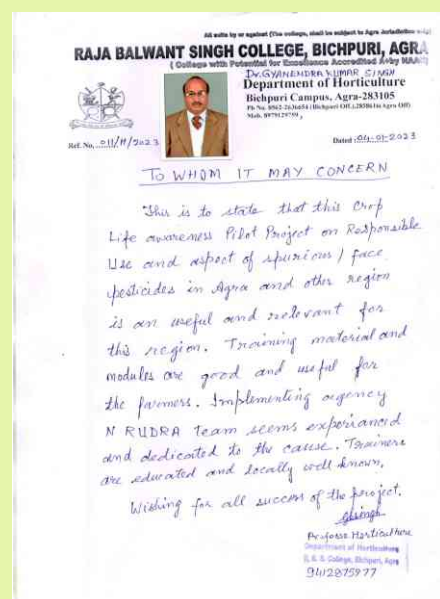 All suits by or against (The college, shall be subject to Agra Jurisdiction only)
RAJA BALWANT SINGH COLLEGE, BICHPURI, AGRA
( College with Potential for Excellence Accredited A+by NAAC)
Dr. GYANENDRA KUMAR SINGH
Department of Horticulture
Bichpuri Campus, Agra-283105
Ph No. 0562-2636654 (Bichpuri Off.),2858616( Agra Off)
Mob. 8979129759,
Ref. No. 011/H/2023
Dated :04-01-2023
TO WHOM IT MAY CONCERN
This is to state that this Crop
Life awareness Pilot Project on Responsible
Use and aspect of spurious / face
pesticides in Agra and other region
is an useful and relevant for
this region. Training material and
modules are good and useful for
the farmers. Implementing agency
N RUDRA team seems experianced
and dedicated to the cause. Trainers
are educated and locally well known.
Wishing for all success of the project.
Gksingh
Professor Horticulture
Department of Horticulture
R. B. S. College, Bichpuri, Agra
9412875977